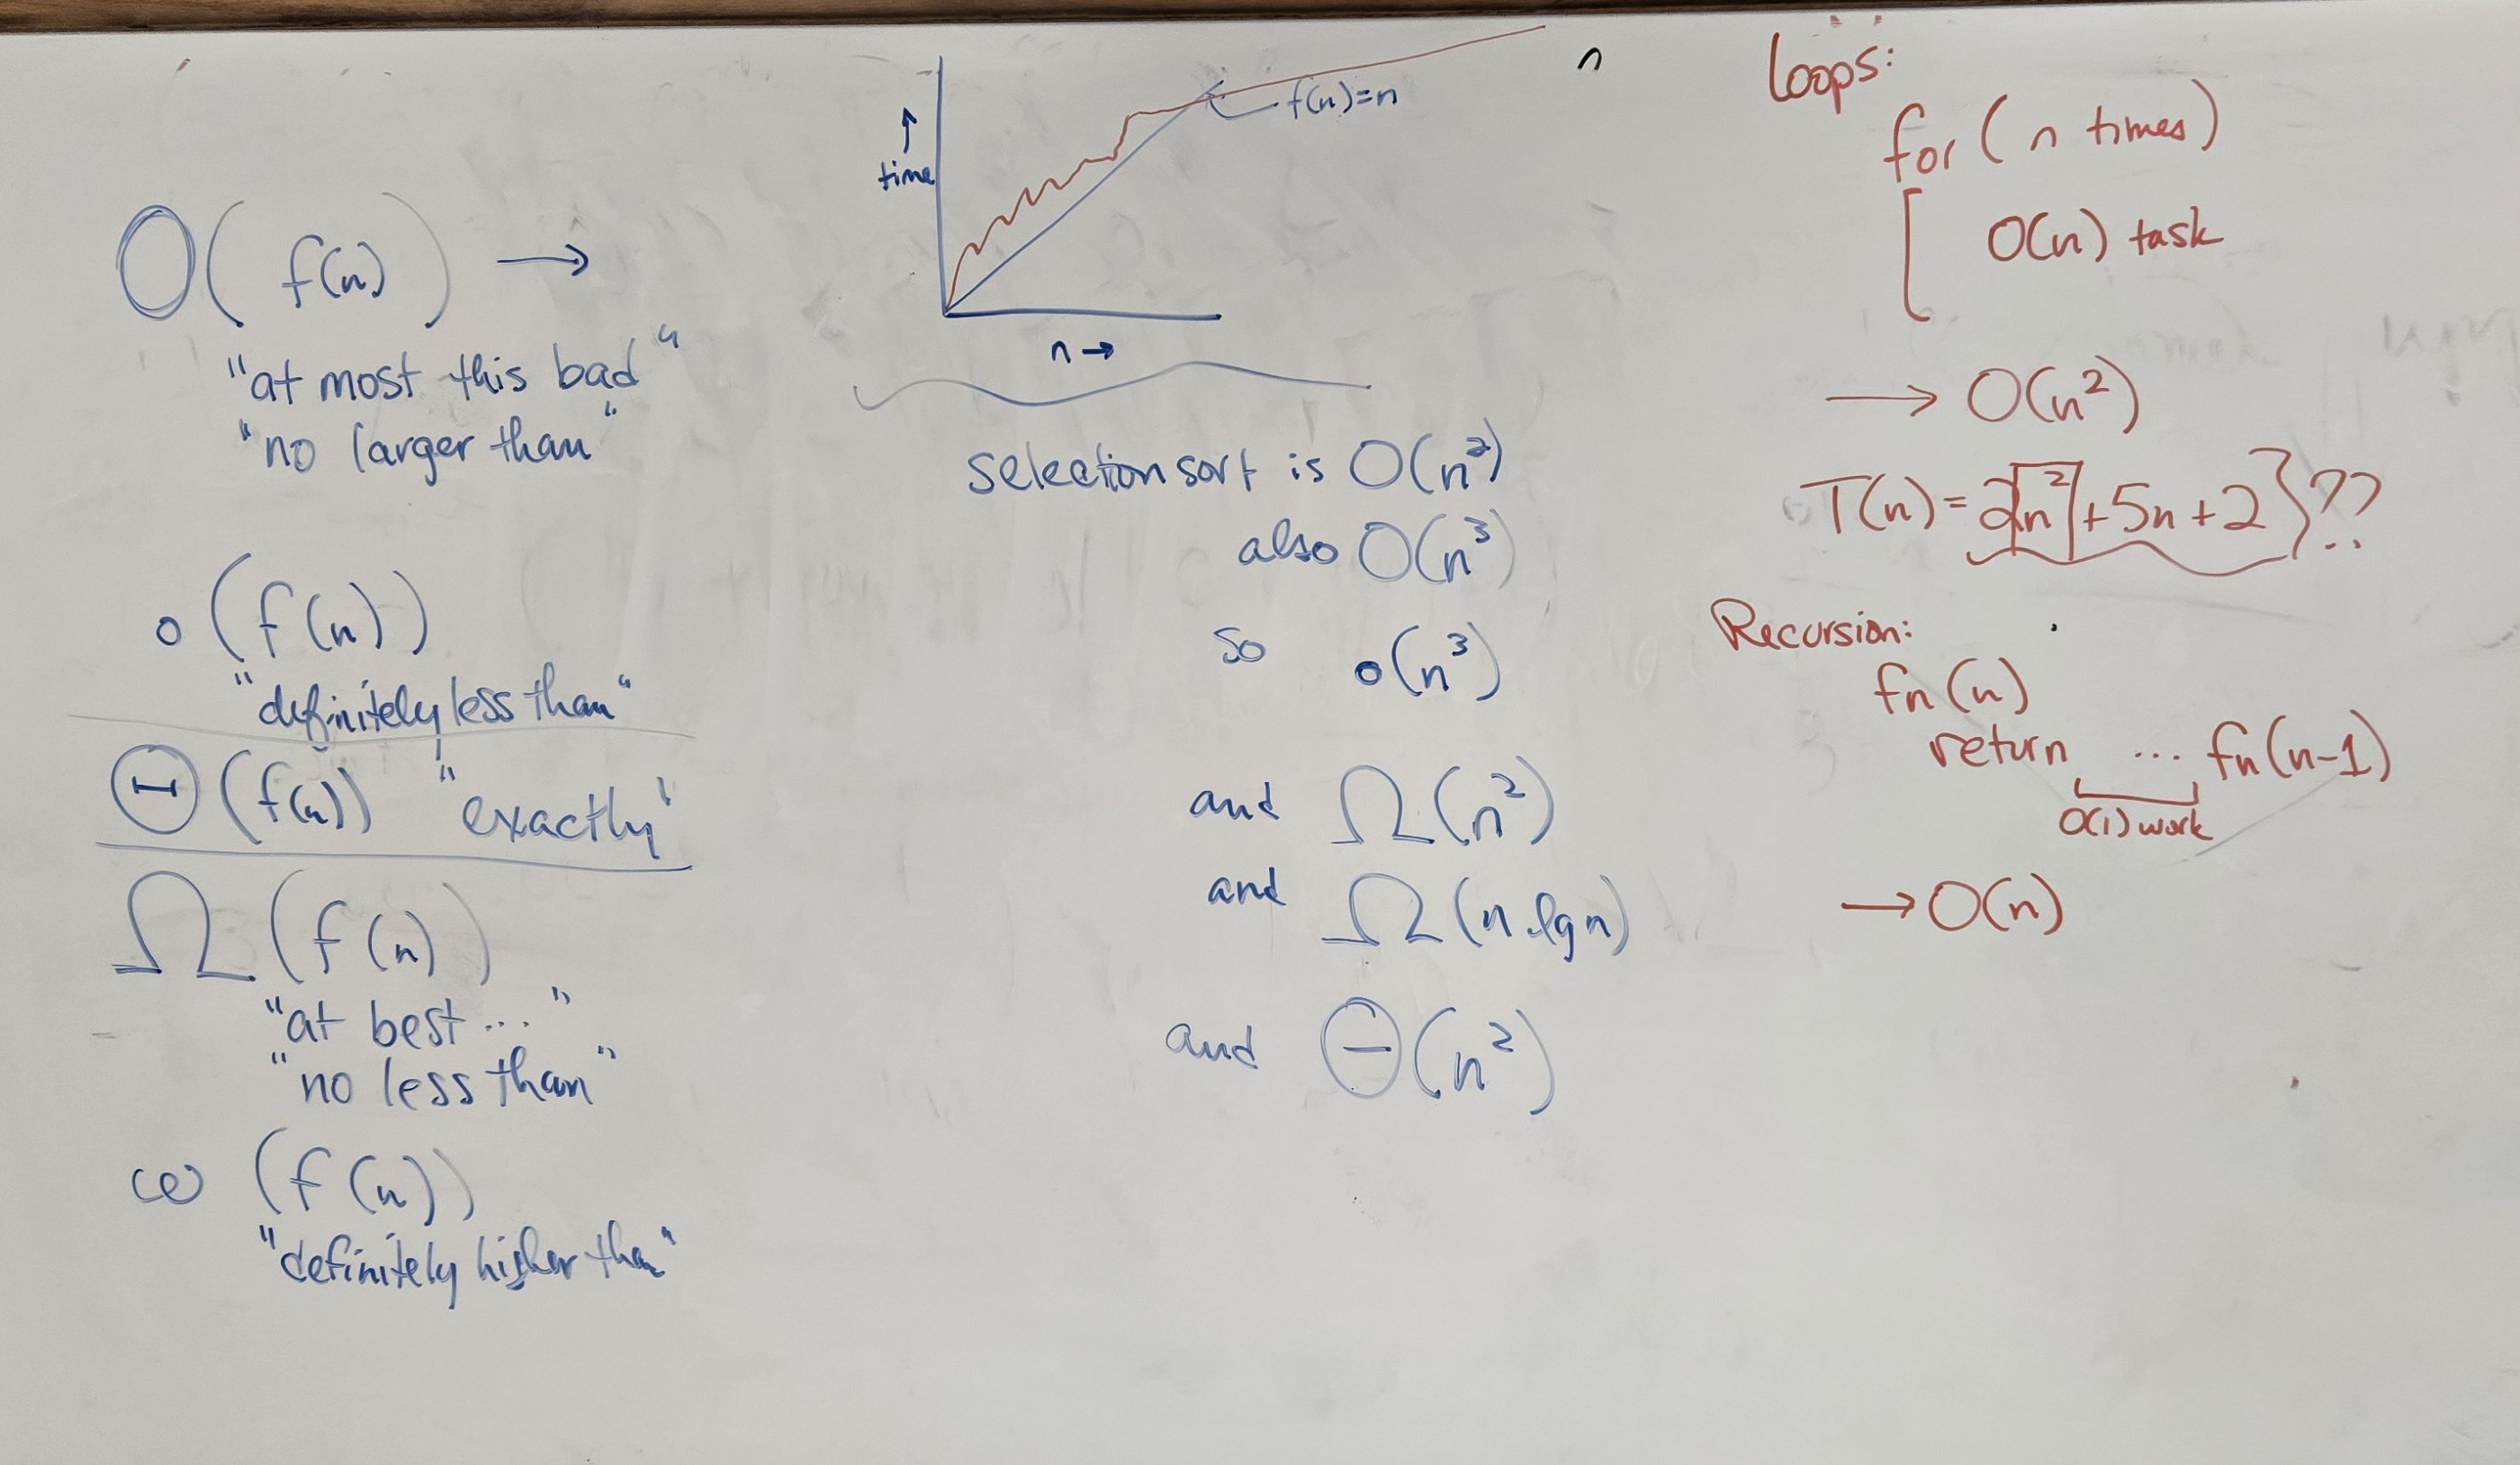 O( f(n) ) →
"at most this bad"
"no larger than"
o (f(n))
"definitely less than"
Θ (f(n)) "exactly"
Ω (f(n))
"at best ..."
"no less than"
ω (f(n))
"definitely higher than"
↑
time
n →
f(n)=n
n
selection sort is O(n²)
also O(n³)
so o(n³)
and Ω(n²)
and Ω(n lg n)
and Θ(n²)
Loops:
for (n times)
[ O(n) task
→ O(n²)
T(n) = 2n² + 5n + 2 } ??
Recursion:
fn(n)
return ... fn(n-1)
O(1) work
→ O(n)